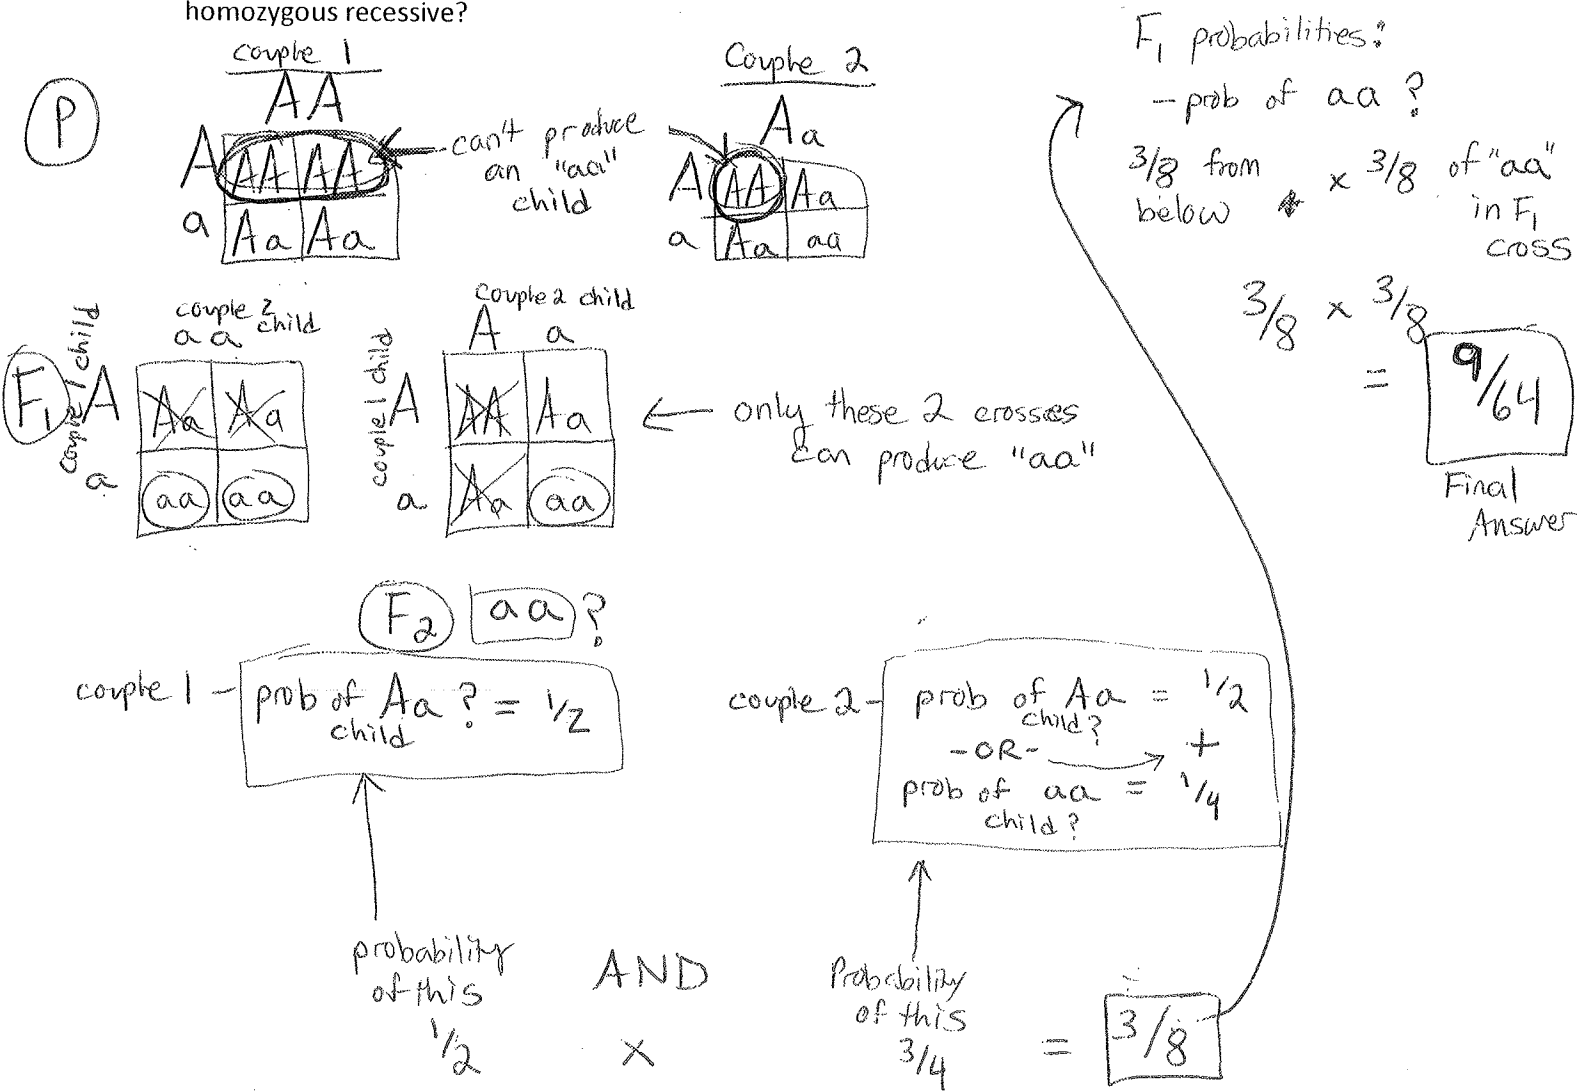 homozygous recessive?
couple 1
AA
P
A
AA AA
a
Aa Aa
can't produce
an "aa"
child
Couple 2
Aa
A
AA Aa
a
Aa aa
F1 probabilities:
- prob of aa ?
3/8 from
below
x 3/8 of "aa"
in F1
cross
3/8 x 3/8
= 9/64
Final
Answer
F1
couple 2
child
aa
couple 1 child
A
Aa Aa
a
aa aa
couple 2 child
A a
couple 1 child
A
AA Aa
a
Aa aa
← only these 2 crosses
can produce "aa"
F2 aa ?
couple 1 -
prob of Aa ? = 1/2
child
couple 2 -
prob of Aa = 1/2
child?
-OR- → +
prob of aa = 1/4
child?
probability
of this
1/2
AND
x
Probability
of this
3/4
= 3/8